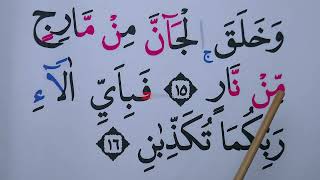 وَخَلَقَ الْجَآنَّ مِنْ مَّارِجٍ
مِّنْ نَّارٍ ۝١٥ فَبِاَيِّ اٰلَآءِ
رَبِّكُمَا تُكَذِّبٰنِ ۝١٦